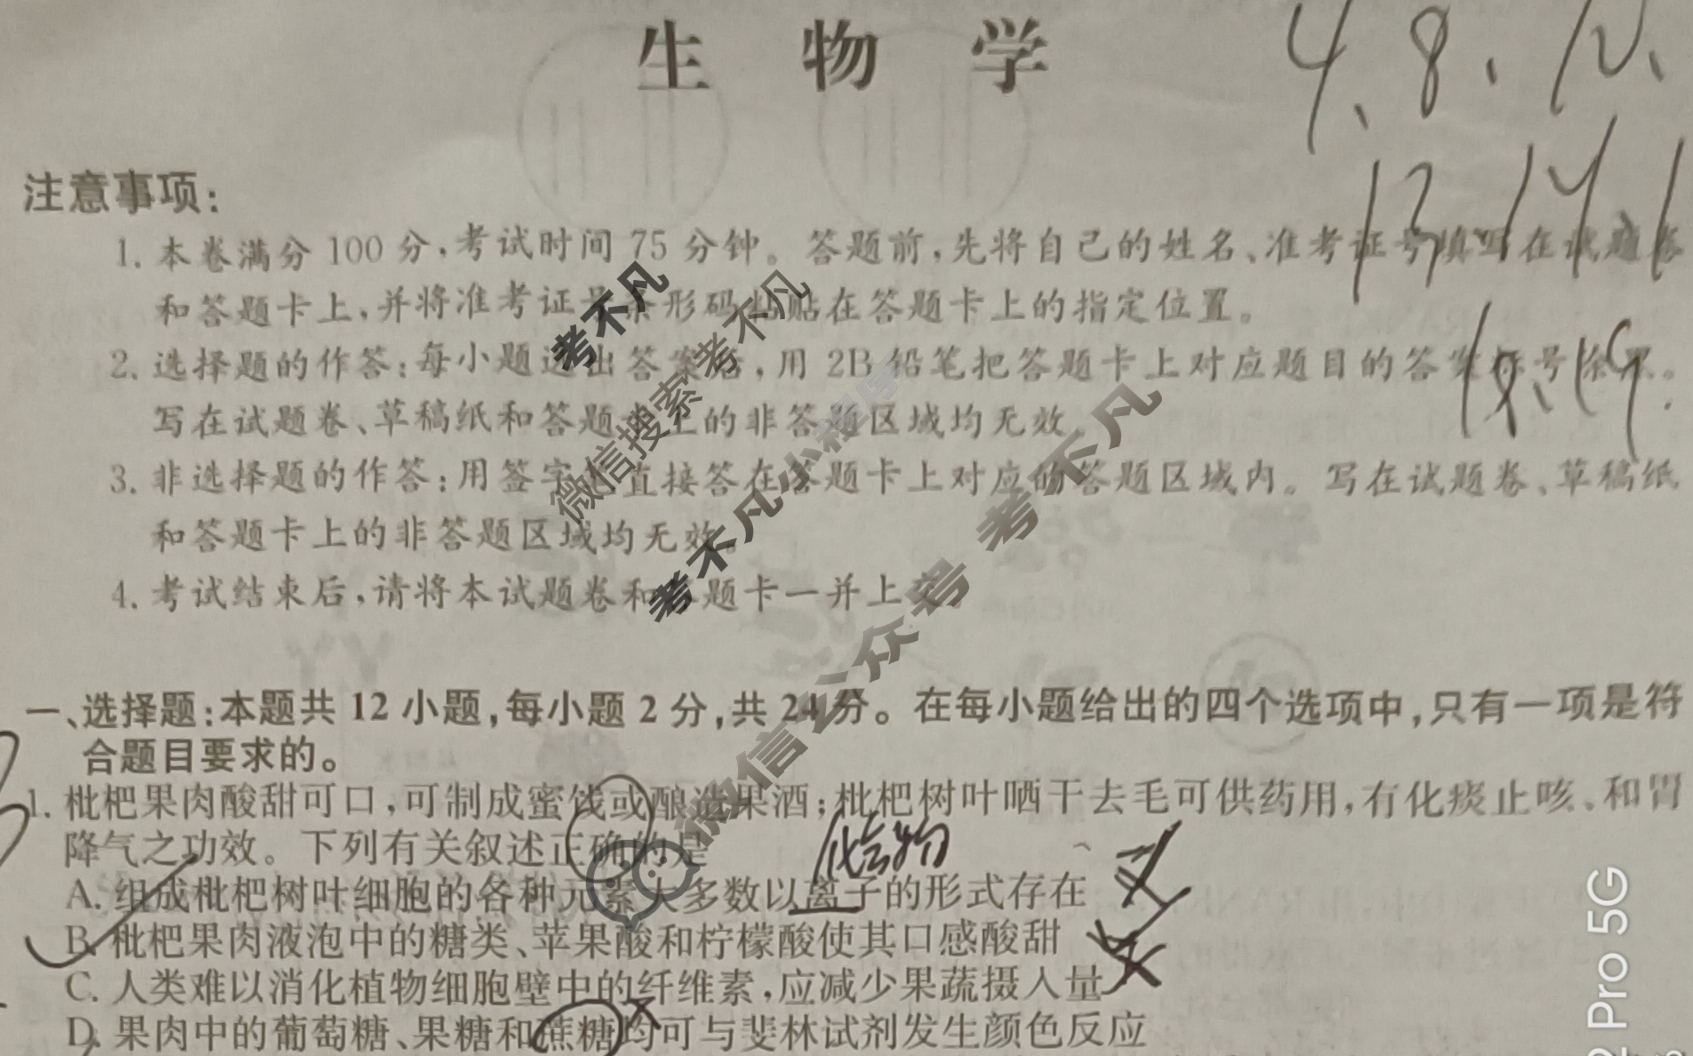 生物学
4、8、12、
13、14、1
18、19.
注意事项:
1. 本卷满分 100 分,考试时间 75 分钟。答题前,先将自己的姓名、准考证号填写在试题卷
和答题卡上,并将准考证号条形码粘贴在答题卡上的指定位置。
2. 选择题的作答:每小题选出答案后,用 2B 铅笔把答题卡上对应题目的答案标号涂黑。
写在试题卷、草稿纸和答题卡上的非答题区域均无效。
3. 非选择题的作答:用签字笔直接答在答题卡上对应的答题区域内。写在试题卷、草稿纸
和答题卡上的非答题区域均无效。
4. 考试结束后,请将本试题卷和答题卡一并上交。
考不凡
微信搜索 考不凡
考不凡小程序
微信公众号 考不凡
一、选择题:本题共 12 小题,每小题 2 分,共 24 分。在每小题给出的四个选项中,只有一项是符
合题目要求的。
1. 枇杷果肉酸甜可口,可制成蜜饯或酿造果酒;枇杷树叶晒干去毛可供药用,有化痰止咳、和胃
降气之功效。下列有关叙述正确的是
化合物
A. 组成枇杷树叶细胞的各种元素大多数以离子的形式存在
B. 枇杷果肉液泡中的糖类、苹果酸和柠檬酸使其口感酸甜
C. 人类难以消化植物细胞壁中的纤维素,应减少果蔬摄入量
D. 果肉中的葡萄糖、果糖和蔗糖均可与斐林试剂发生颜色反应
2 Pro 5G